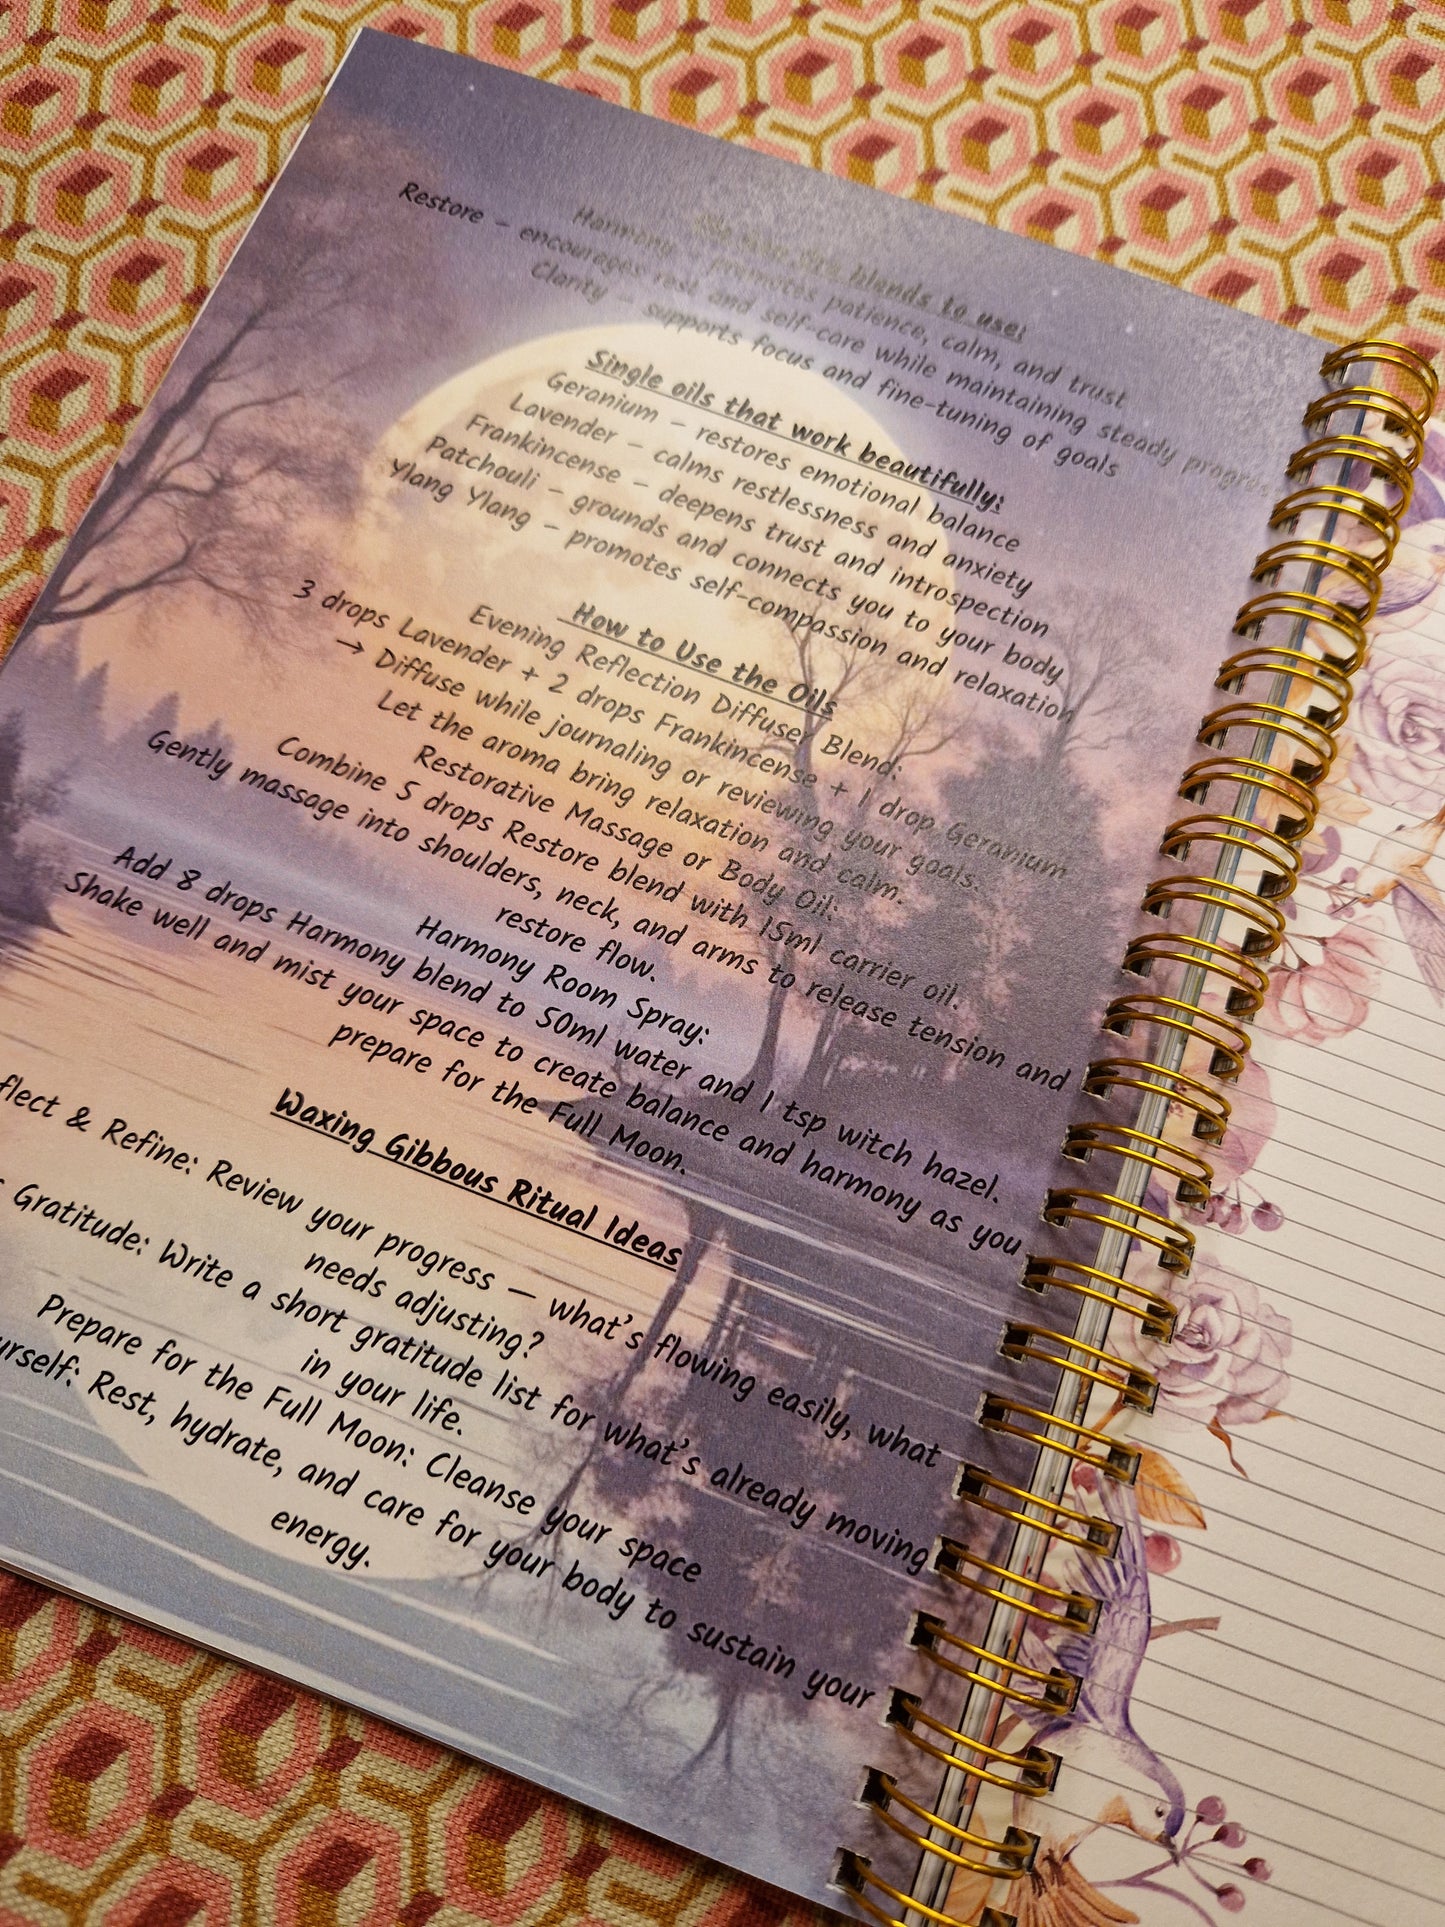 blends to use:
Harmony – promotes patience, calm, and trust
Restore – encourages rest and self-care while maintaining steady progress
Clarity – supports focus and fine-tuning of goals
Single oils that work beautifully:
Geranium – restores emotional balance
Lavender – calms restlessness and anxiety
Frankincense – deepens trust and introspection
Patchouli – grounds and connects you to your body
Ylang Ylang – promotes self-compassion and relaxation
How to Use the Oils
Evening Reflection Diffuser Blend:
3 drops Lavender + 2 drops Frankincense + 1 drop Geranium
→ Diffuse while journaling or reviewing your goals.
Let the aroma bring relaxation and calm.
Restorative Massage or Body Oil:
Combine 5 drops Restore blend with 15ml carrier oil.
Gently massage into shoulders, neck, and arms to release tension and
restore flow.
Harmony Room Spray:
Add 8 drops Harmony blend to 50ml water and 1 tsp witch hazel.
Shake well and mist your space to create balance and harmony as you
prepare for the Full Moon.
Waxing Gibbous Ritual Ideas
flect & Refine: Review your progress — what's flowing easily, what
needs adjusting?
Gratitude: Write a short gratitude list for what's already moving
in your life.
Prepare for the Full Moon: Cleanse your space
urself: Rest, hydrate, and care for your body to sustain your
energy.